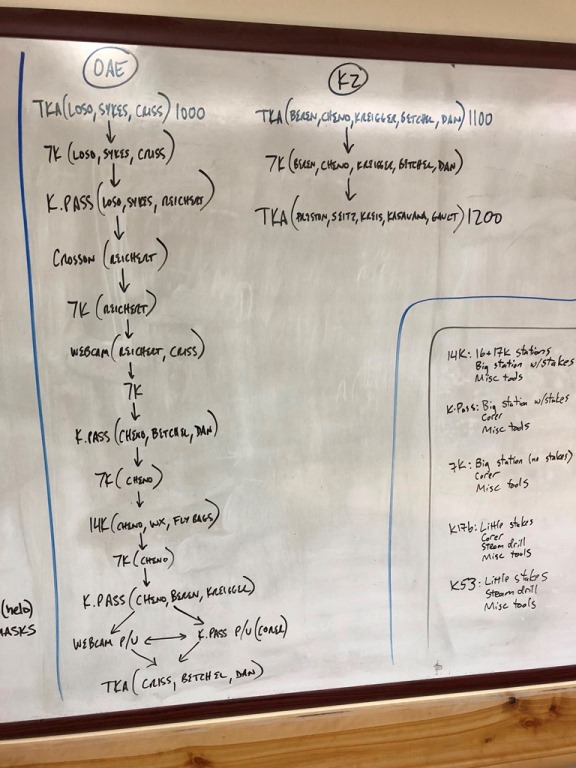 OAE
TKA (LOSO, SYKES, CRISS) 1000
7K (LOSO, SYKES, CRISS)
K.PASS (LOSO, SYKES, REICHERT)
CROSSON (REICHERT)
7K (REICHERT)
WEBCAM (REICHERT, CRISS)
7K
K.PASS (CHENO, BETCHEL, DAN)
7K (CHENO)
14K (CHENO, WX, FLY BAGS)
7K (CHENO)
K.PASS (CHENO, BEREN, KREIGGER)
WEBCAM P/U K.PASS P/U (CORER)
TKA (CRISS, BETCHEL, DAN)
KZ
TKA (BEREN, CHENO, KREIGGER, BETCHEL, DAN) 1100
7K (BEREN, CHENO, KREIGGER, BETCHEL, DAN)
TKA (PRISTON, SEITZ, KREIS, KASAVANA, GAUCT) 1200
14K: 16+17K stations
Big station w/stakes
Misc tools
K.Pass: Big station w/stakes
Corer
Misc tools
7K: Big station (no stakes)
Corer
Misc tools
K17b: Little stakes
Corer
Steam drill
Misc tools
K53: Little stakes
Steam drill
Misc tools
(helo)
MASKS